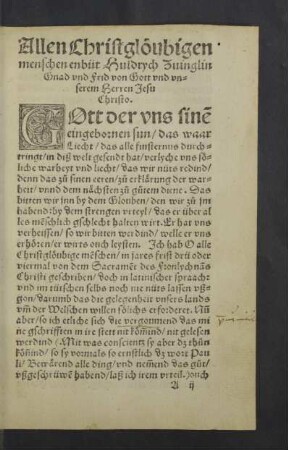 Allen Christglöubigen
menschen enbüt Huldrych Zuinglin
Gnad vnd Frid von Gott vnd vn-
serem Herren Jesu
Christo.
GOtt der vns sinē
eingebornen sun / das waar
Liecht / das alle finsternus durch-
tringt / in diß welt gesendt hat / verlyhe vns sö-
liche warheyt vnd liecht / das wir nüts redind /
denn das zů sinen eeren / zů erklärung der war-
heyt / vnnd dem nächsten zů gůtem diene. Das
bitten wir inn by dem Glouben / den wir zů jm
habend: by dem strengen vrteyl / das er über al
les mēschlich gschlecht halten wirt. Er hat vns
verheissen / so wir bitten werdind / welle er vns
erhören / er wirts ouch leysten. Jch hab O alle
Christglöubige mēschen / in jares frist drü oder
viermal von dem Sacramēt des Fronlychnās
Christi geschriben / doch in latinischer spraach
vnd im tütschen selbs noch nie nüts lassen vßgon /
darumb das die gelegenheit vnsers lands
vn̄ der Welschen willen sölichs erforderet. Nū
aber / so ich etliche sich des vergommend das mi
ne gschrifften in ire stett nit kōmind / nit gelesen
werdind / (Mit was conscientz sy aber dz thůn
kōnind / so sy vormals so ernstlich dz wort Pau
li / Bewärend alle ding / vnd nemend das gůt /
vßgeschrüwē habend / laß ich irem vrteil) ouch
A ij